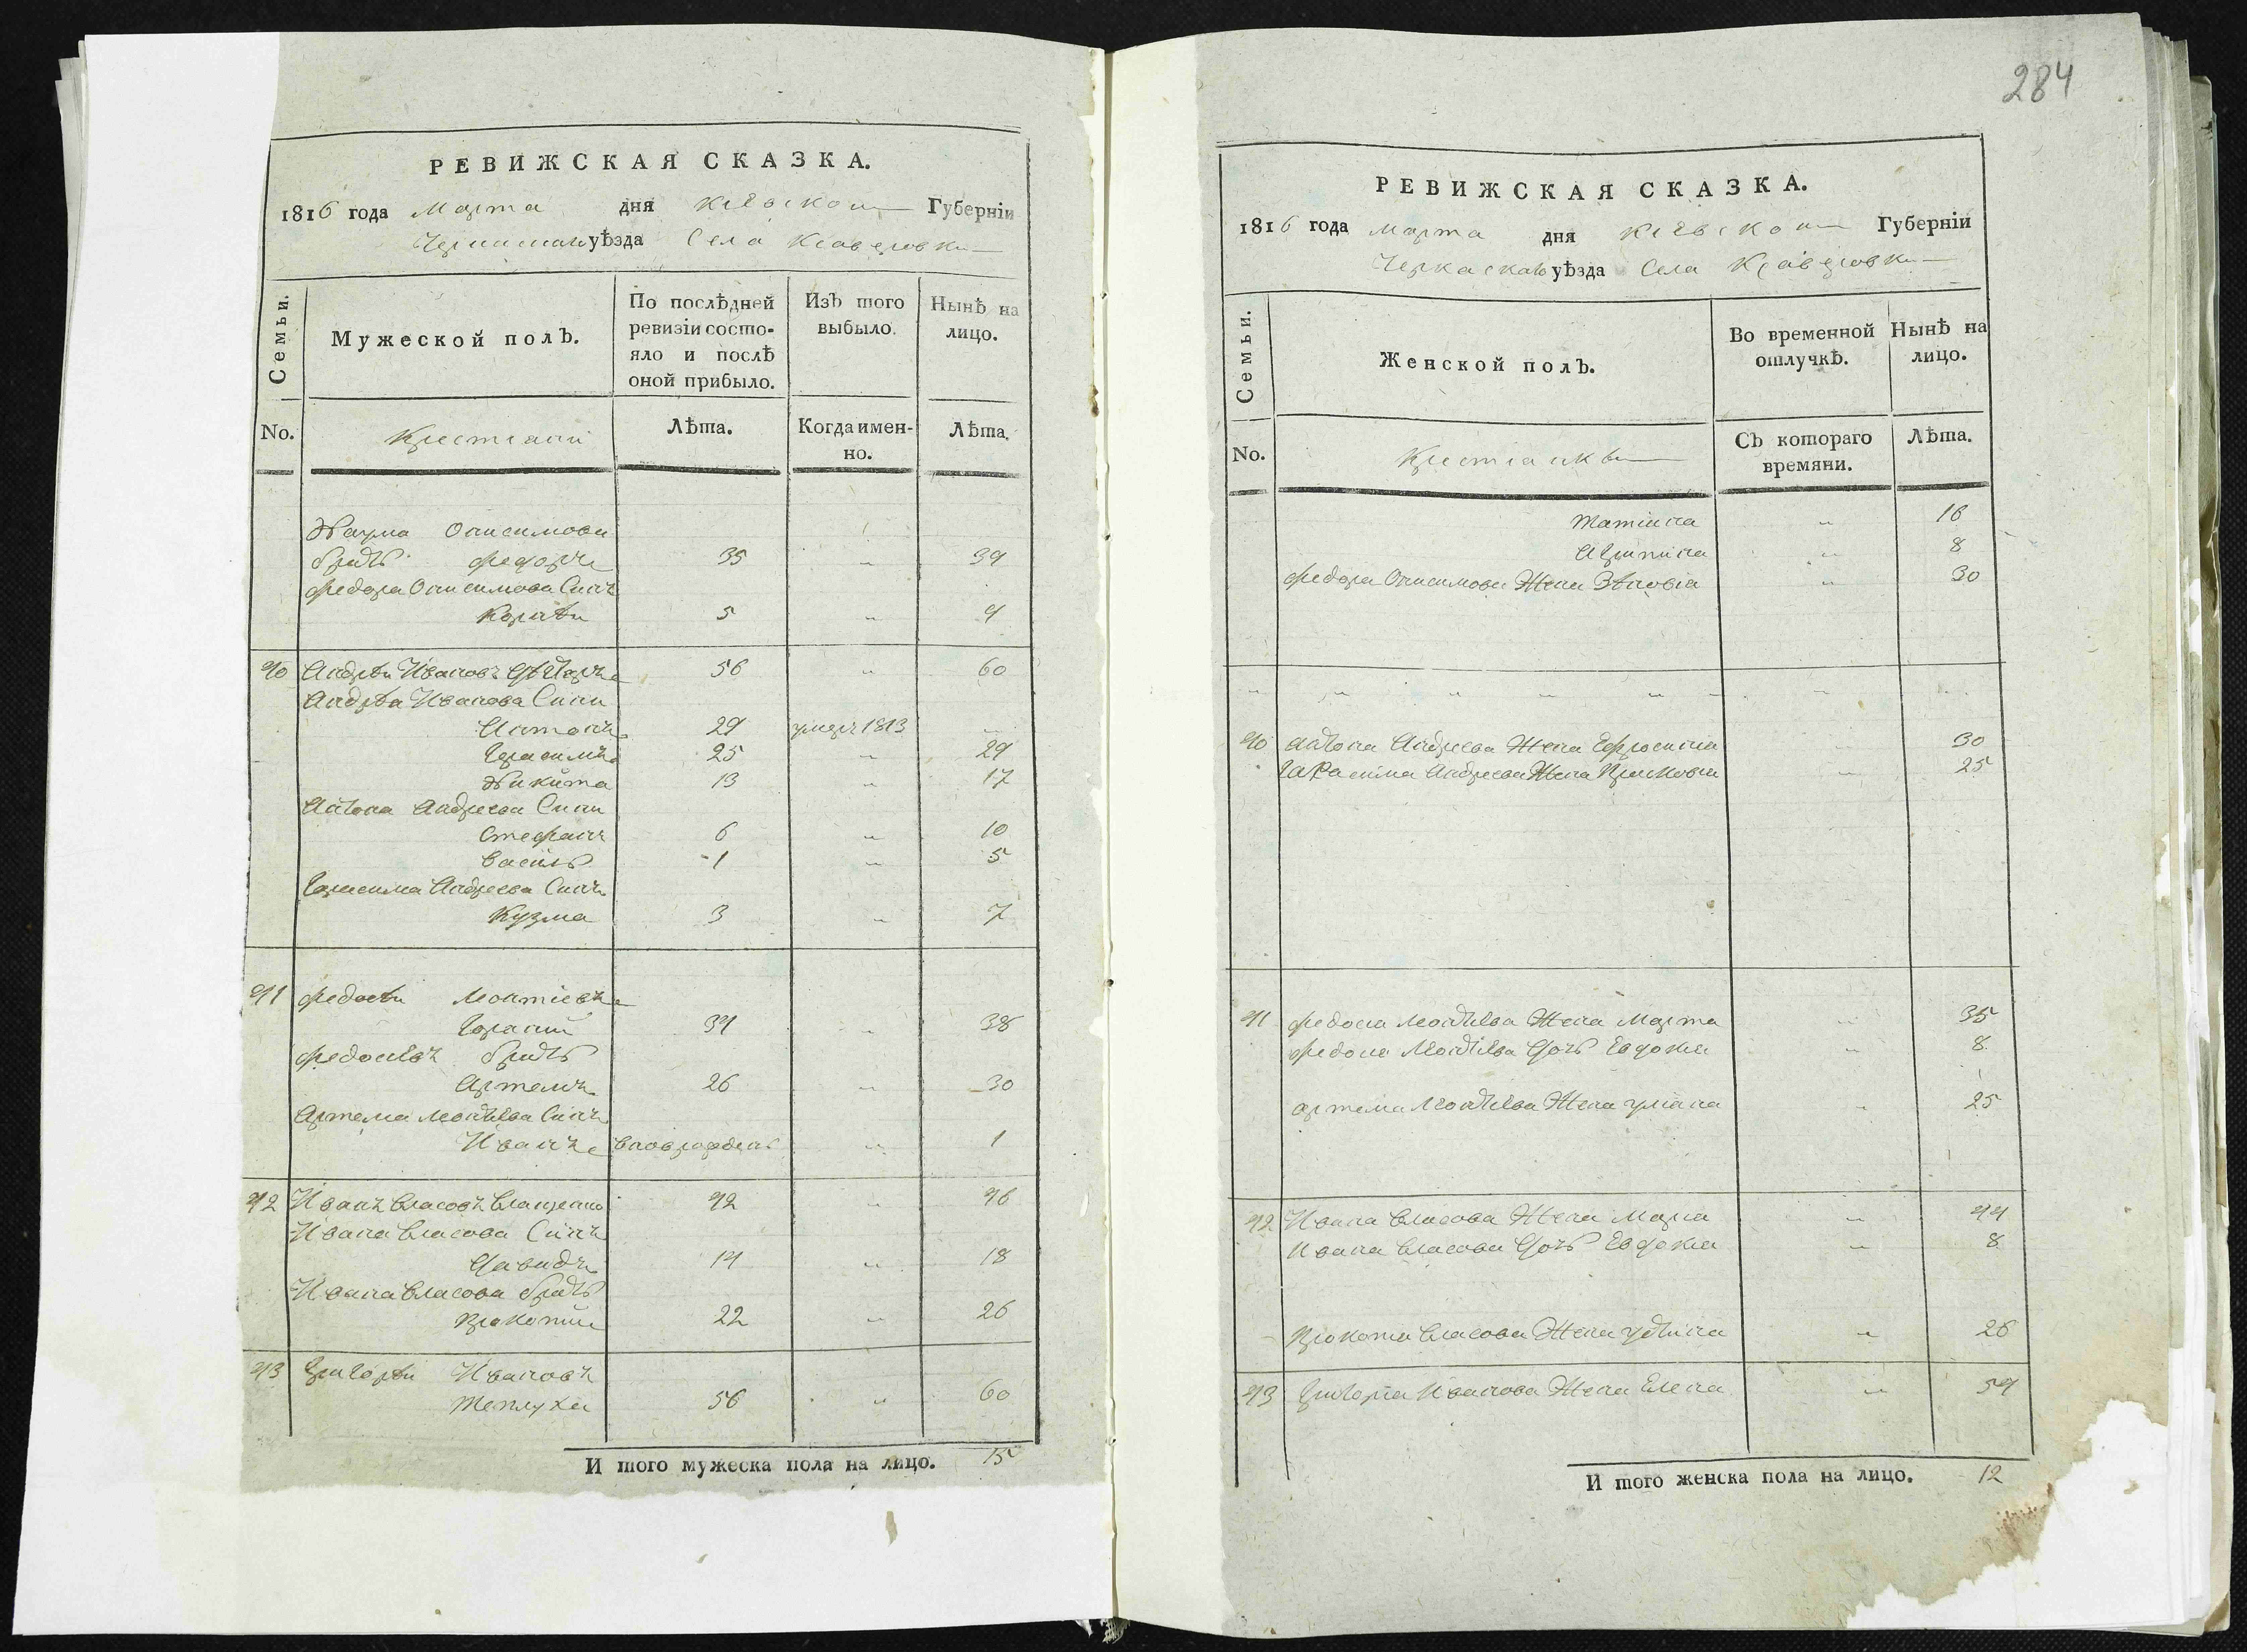 РЕВИЖСКАЯ СКАЗКА.
1816 года Марта дня Киевской Губернiи
уѣзда Села
Семьи.
Мужеской полъ.
По послѣдней ревизiи состояло и послѣ оной прибыло.
Изъ того выбыло.
Нынѣ на лицо.
No.
Крестiани
Лѣта.
Когда именно.
Лѣта.
Наума Онисимова
братъ Федоръ 35 " 39
Федора Онисимова Синъ
Корнѣи 5 " 9
40 Андрѣи Ивановъ 56 " 60
Андрѣа Иванова Сини
Антонъ 29 умеръ 1813 "
Герасимъ 25 " 29
Никита 13 " 17
Антона Андреева Сини
Стефанъ 6 " 10
Василь 1 " 5
Герасима Андреева Синъ
Кузма 3 " 7
41 Федосѣи Леонтiевъ
34 " 38
братъ
Артемъ 26 " 30
Артема Леонтiева Синъ
Иванъ вновьрожденъ " 1
42 Иванъ Власовъ 42 " 46
Ивана Власова Синъ
Давидъ 14 " 18
Ивана Власова братъ
Прокопiи 22 " 26
43 Григорѣи Ивановъ
Теплуха 56 " 60
И того мужеска пола на лицо. 15
284
РЕВИЖСКАЯ СКАЗКА.
1816 года Марта дня Киевской Губернiи
Черкаскаго уѣзда Села
Семьи.
Женской полъ.
Во временной отлучкѣ.
Нынѣ на лицо.
No.
Крестiанки
Съ котораго времяни.
Лѣта.
Татiана " 16
Агрипина " 8
Федора Онисимова Жена Зѣновiа " 30
" " " " " " " "
40 Антона Андреева Жена Ефросинiа " 30
Гарасима Андреева Жена Присковiа " 25
41 Федосѣа Леонтiева Жена Марта " 35
Федосѣа Леонтiева Дочь Евдокiа " 8
Артема Леонтiева Жена Улiана " 25
42 Ивана Власова Жена Марiа " 44
Ивана Власова Дочь Евдокiа " 8
Прокопiа Власова Жена Устинiа " 26
43 Григорiа Иванова Жена Елена " 54
И того женска пола на лицо. 12